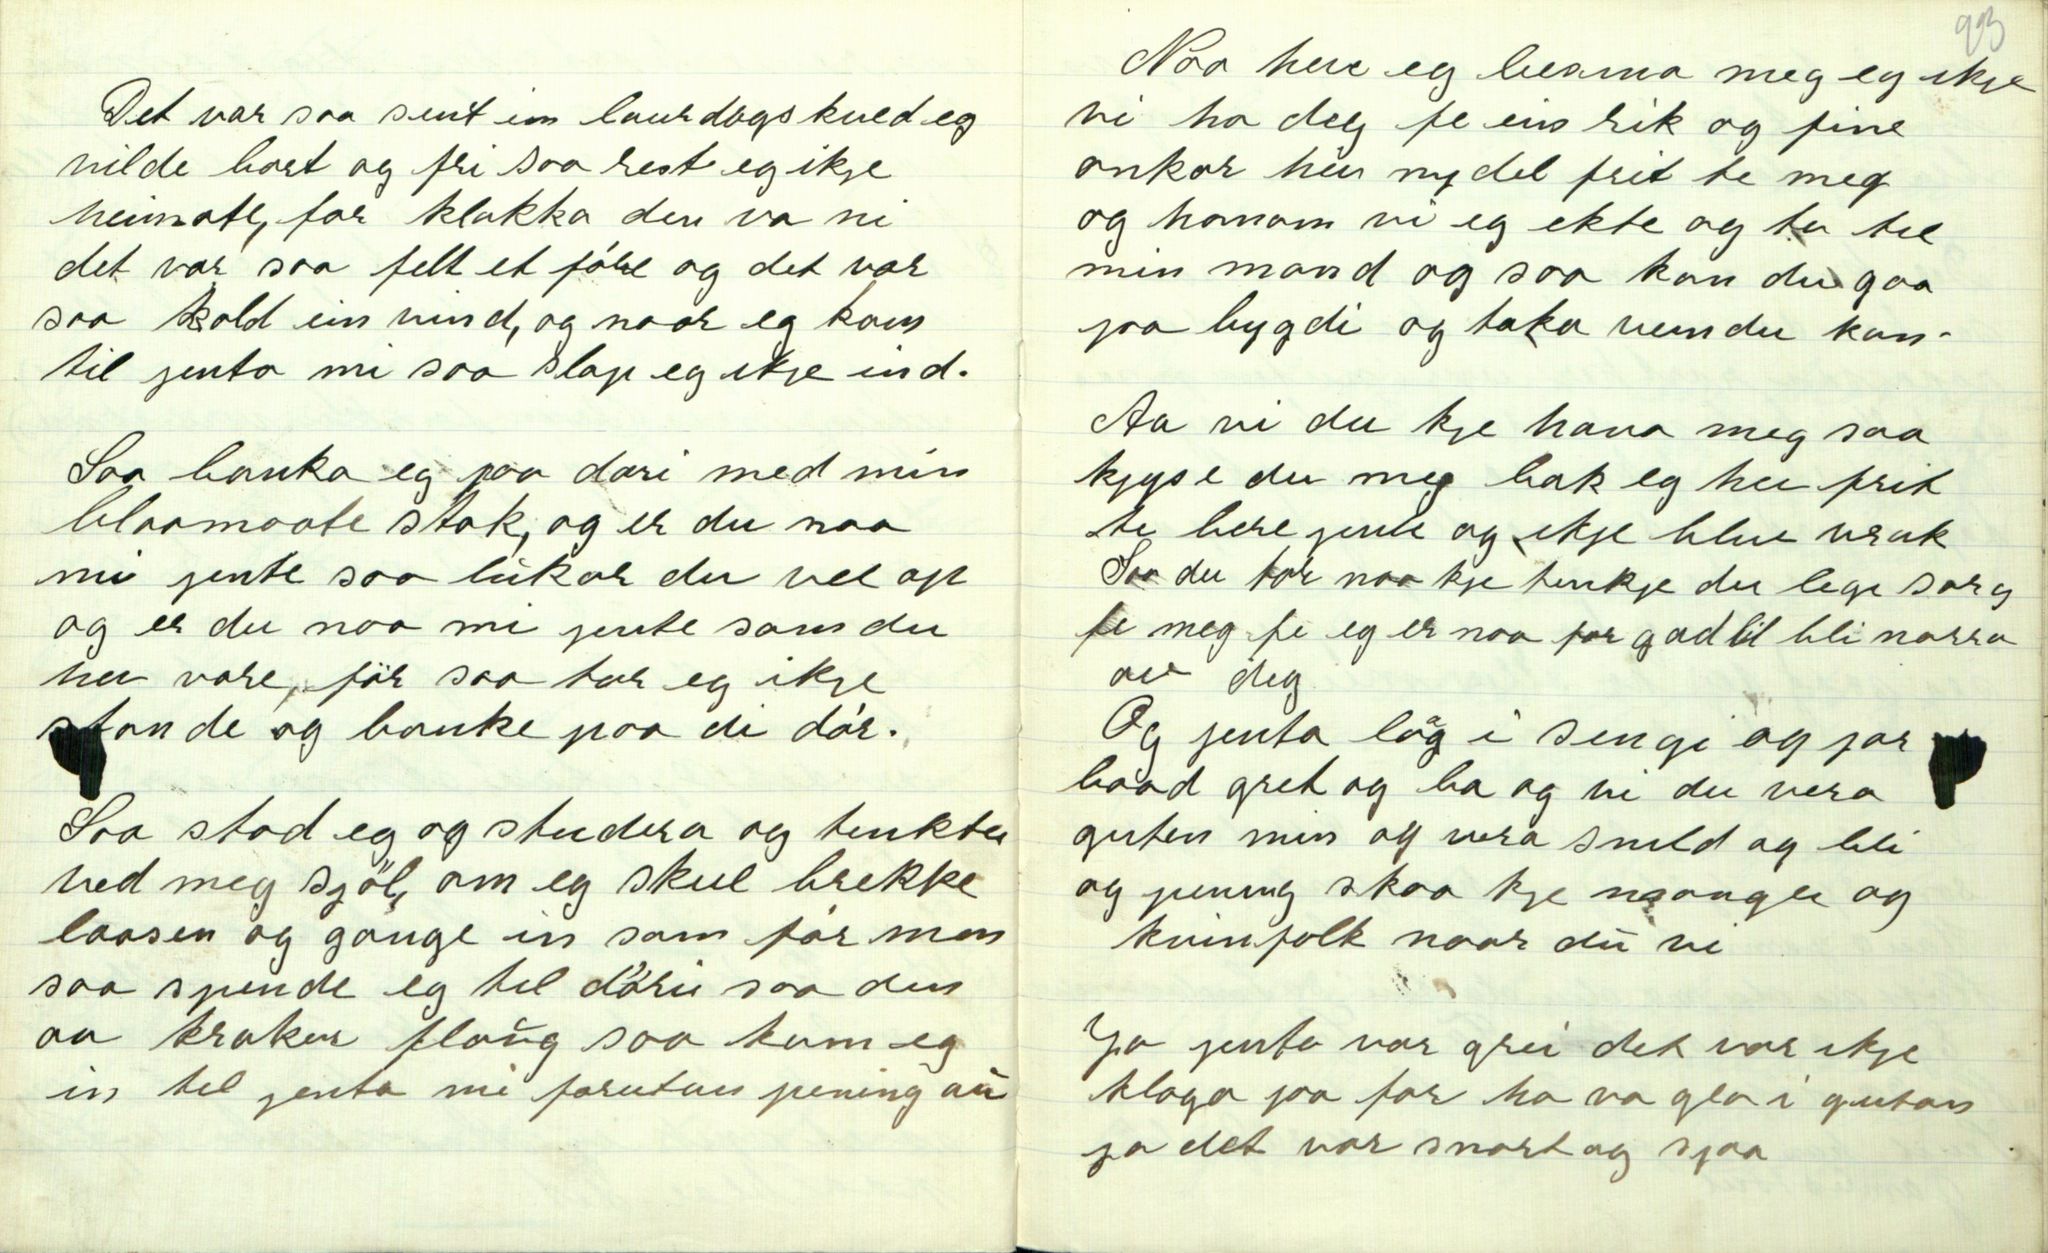 Det var saa sent ein laurdagskveld eg
vilde bort og fri saa reste eg ikje
heimate, for klokka den va ni
det var saa felt et före og det var
saa kold ein vind, og naar eg kom
til jenta mi saa slap eg ikje ind.
Saa banka eg paa dori med min
blaamaate stok, og er du naa
mi jente saa lukar du vel op
og er du naa mi jente som du
hev vore, för saa tar eg ikje
stande og banke paa di dör.
Saa stod eg og studera og tenkte
ved meg sjöl, om eg skul brekke
laasen og gange in som för men
saa spende eg til döri saa den
aa kraker flaug saa kom eg
in til jenta mi forutan pening au
93
Naa heve eg besina meg eg ikje
vi ha deg fe ein rik og fine
onkar hev nydel frit te meg
og honom vi eg ekte og ta tel
min mand og saa kan du gaa
paa bygdi og taka vem du kan.
Aa vi du kje hava meg saa
kjyse du meg bak eg hev frit
te bere jente og ikje bleve vrak
Saa du tör naa kje tenkje du lege sorg
fe meg fe eg er naa for god til bli narra
av deg
Og jenta låg i sengi og for
baad gret og ba og vi du vera
guten min og vera snild og bli
og pening skaa kje mangle og
kvinfolk naar du vi
Ja jenta var grei det var ikje
klaga paa for ho va gla i gutan
ja det var snart og sjaa